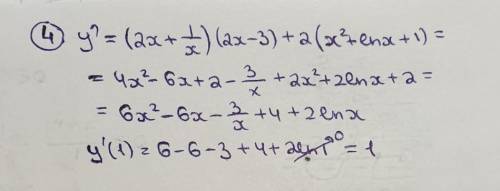 4 y' = (2x + 1/x)(2x-3) + 2(x² + lnx + 1) =
= 4x² - 6x + 2 - 3/x + 2x² + 2lnx + 2 =
= 6x² - 6x - 3/x + 4 + 2lnx
y'(1) = 6 - 6 - 3 + 4 + 2ln1⁰ = 1